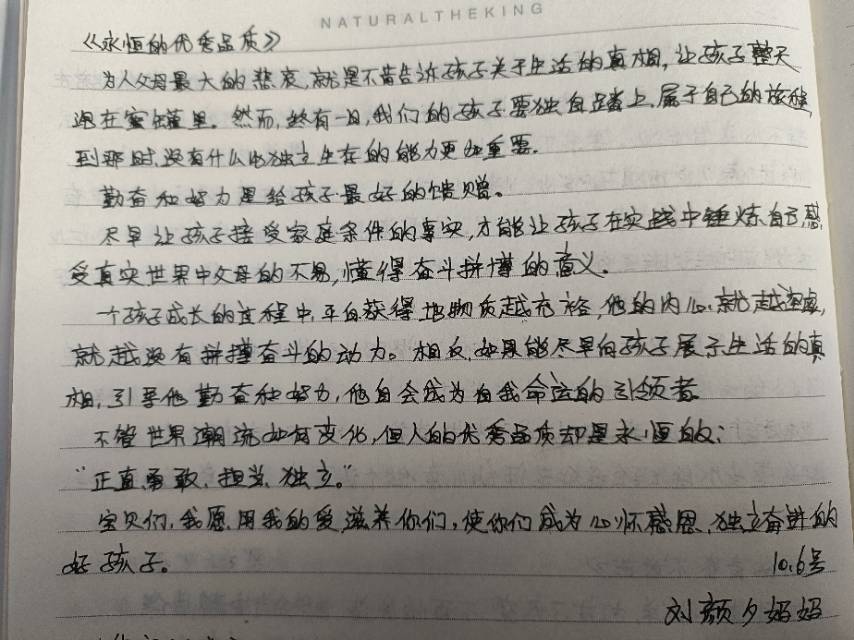 NATURALTHEKING
《永恒的优秀品质》
为人父母最大的悲哀,就是不肯告诉孩子关于生活的真相,让孩子整天
泡在蜜罐里。然而,终有一日,我们的孩子要独自踏上,属于自己的旅程
到那时,没有什么比独立生存的能力更加重要.
勤奋和努力是给孩子最好的馈赠。
尽早让孩子接受家庭条件的事实,才能让孩子在实践中锤炼自己,感
受真实世界中父母的不易,懂得奋斗拼搏的意义。
一个孩子成长的过程中,平白获得地物质越充裕,他的内心就越
就越没有拼搏奋斗的动力。相反,如果能尽早向孩子展示生活的真
相,引导他勤奋和努力,他自会成为自我命运的引领者.
不管世界潮流如何变化,但人的优秀品质却是永恒的:
"正直.勇敢.担当.独立."
宝贝们,我愿用我的爱滋养你们,使你们成为心怀感恩.独立奋进的
好孩子。
10.6号
刘颜夕妈妈